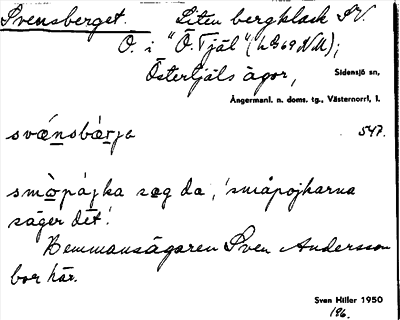 Svensberget. Liten bergklack SV.
O. i "Ö. Tjäl" (hBg69NU);
Östertjäls ägor,
Sidensjö sn,
Ångermanl. n. doms. tg., Västernorrl. l.
svǽnsbærja 547.
småpåjka sæg da, 'småpojkarna
säger det'.
Hemmansägaren Sven Andersson
bor här.
Sven Hiller 1950
196.